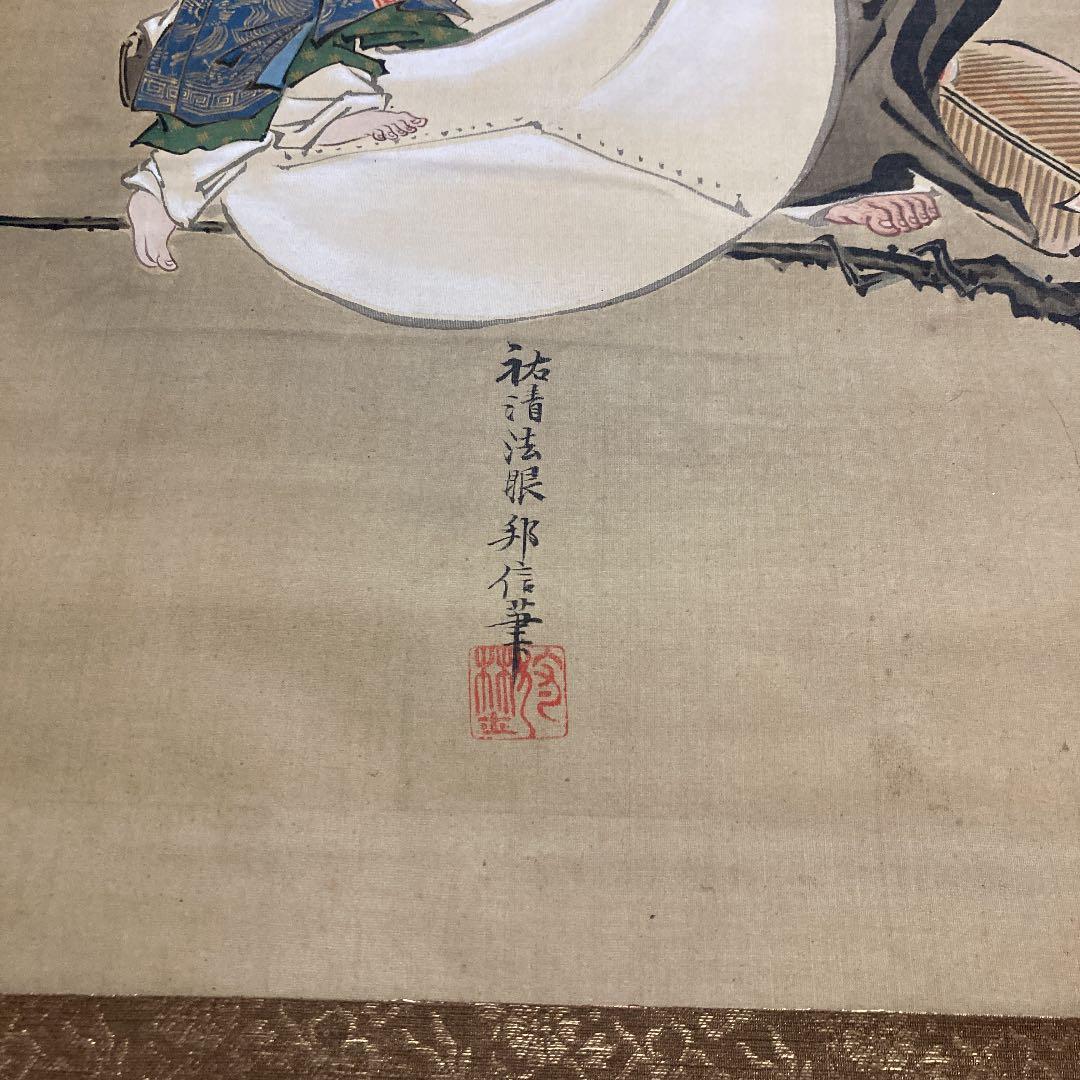 祐清法眼邦信筆